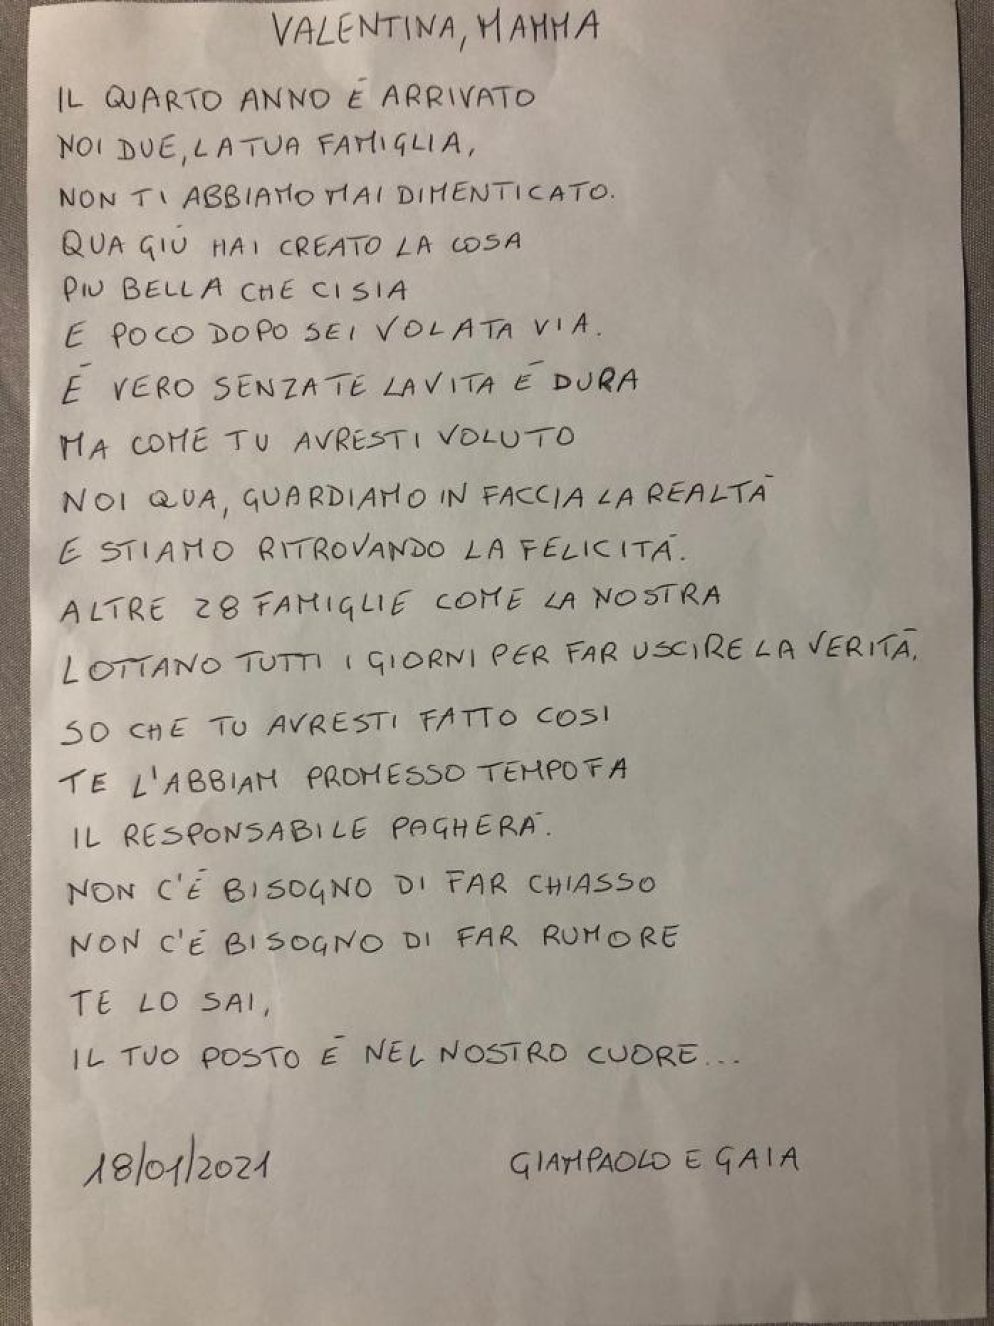 VALENTINA, MAMMA
IL QUARTO ANNO È ARRIVATO
NOI DUE, LA TUA FAMIGLIA,
NON TI ABBIAMO MAI DIMENTICATO.
QUA GIÙ HAI CREATO LA COSA
PIU BELLA CHE CI SIA
E POCO DOPO SEI VOLATA VIA.
È VERO SENZA TE LA VITA È DURA
MA COME TU AVRESTI VOLUTO
NOI QUA, GUARDIAMO IN FACCIA LA REALTÀ
E STIAMO RITROVANDO LA FELICITÀ.
ALTRE 28 FAMIGLIE COME LA NOSTRA
LOTTANO TUTTI I GIORNI PER FAR USCIRE LA VERITÀ,
SO CHE TU AVRESTI FATTO COSI
TE L'ABBIAM PROMESSO TEMPO FA
IL RESPONSABILE PAGHERÀ.
NON C'È BISOGNO DI FAR CHIASSO
NON C'È BISOGNO DI FAR RUMORE
TE LO SAI,
IL TUO POSTO È NEL NOSTRO CUORE...
18/01/2021 GIAMPAOLO E GAIA